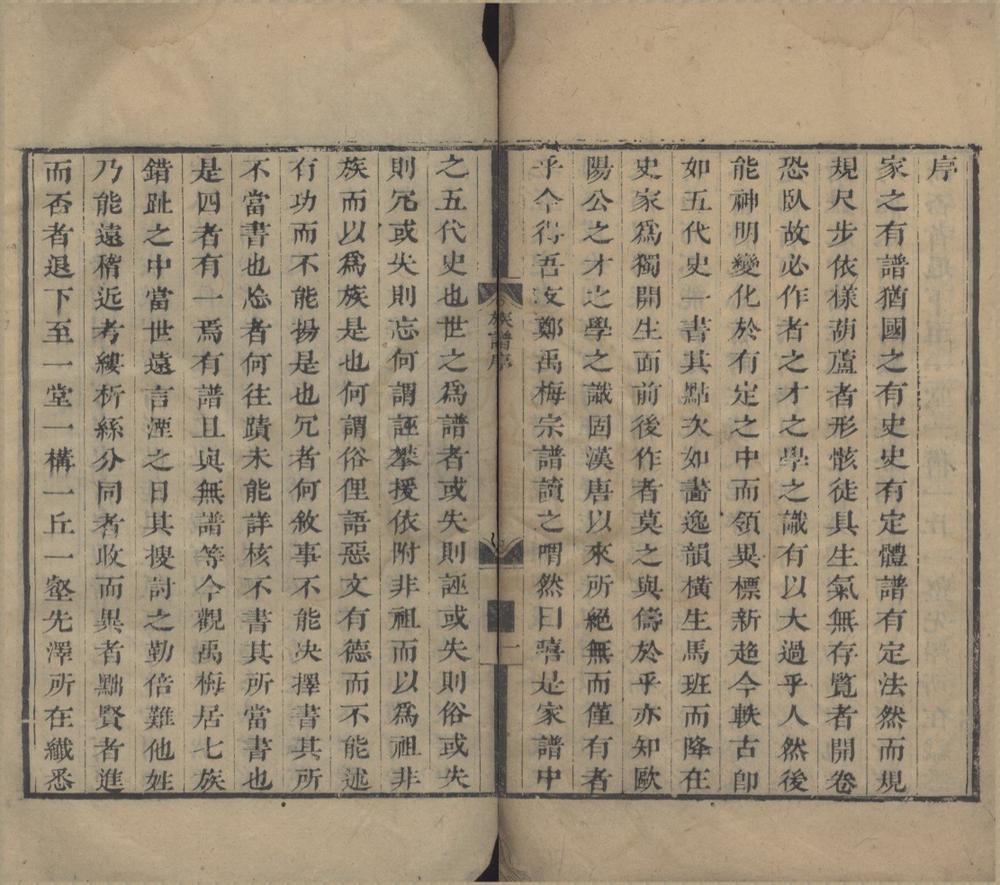 序
家之有譜猶國之有史史有定體譜有定法然而規
規尺步依樣葫蘆者形骸徒具生氣無存覧者開卷
恐臥故必作者之才之學之識有以大過乎人然後
能神明變化於有定之中而領異標新超今軼古卽
如五代史一書其點次如畵逸韻橫生馬班而降在
史家爲獨開生面前後作者莫之與儔於乎亦知歐
陽公之才之學之識固漢唐以來所絕無而僅有者
乎今得吾友鄭禹梅宗譜讀之喟然曰嘻是家譜中
族譜序
一
之五代史也世之爲譜者或失則誣或失則俗或失
則冗或失則忘何謂誣攀援依附非祖而以爲祖非
族而以爲族是也何謂俗俚語惡文有德而不能述
有功而不能揚是也冗者何敘事不能决擇書其所
不當書也忘者何往蹟未能詳核不書其所當書也
是四者有一焉有譜且與無譜等今觀禹梅居七族
錯趾之中當世遠言湮之日其搜討之勤倍難他姓
乃能遠稽近考縷析絲分同者收而異者黜賢者進
而否者退下至一堂一構一丘一壑先澤所在纖悉